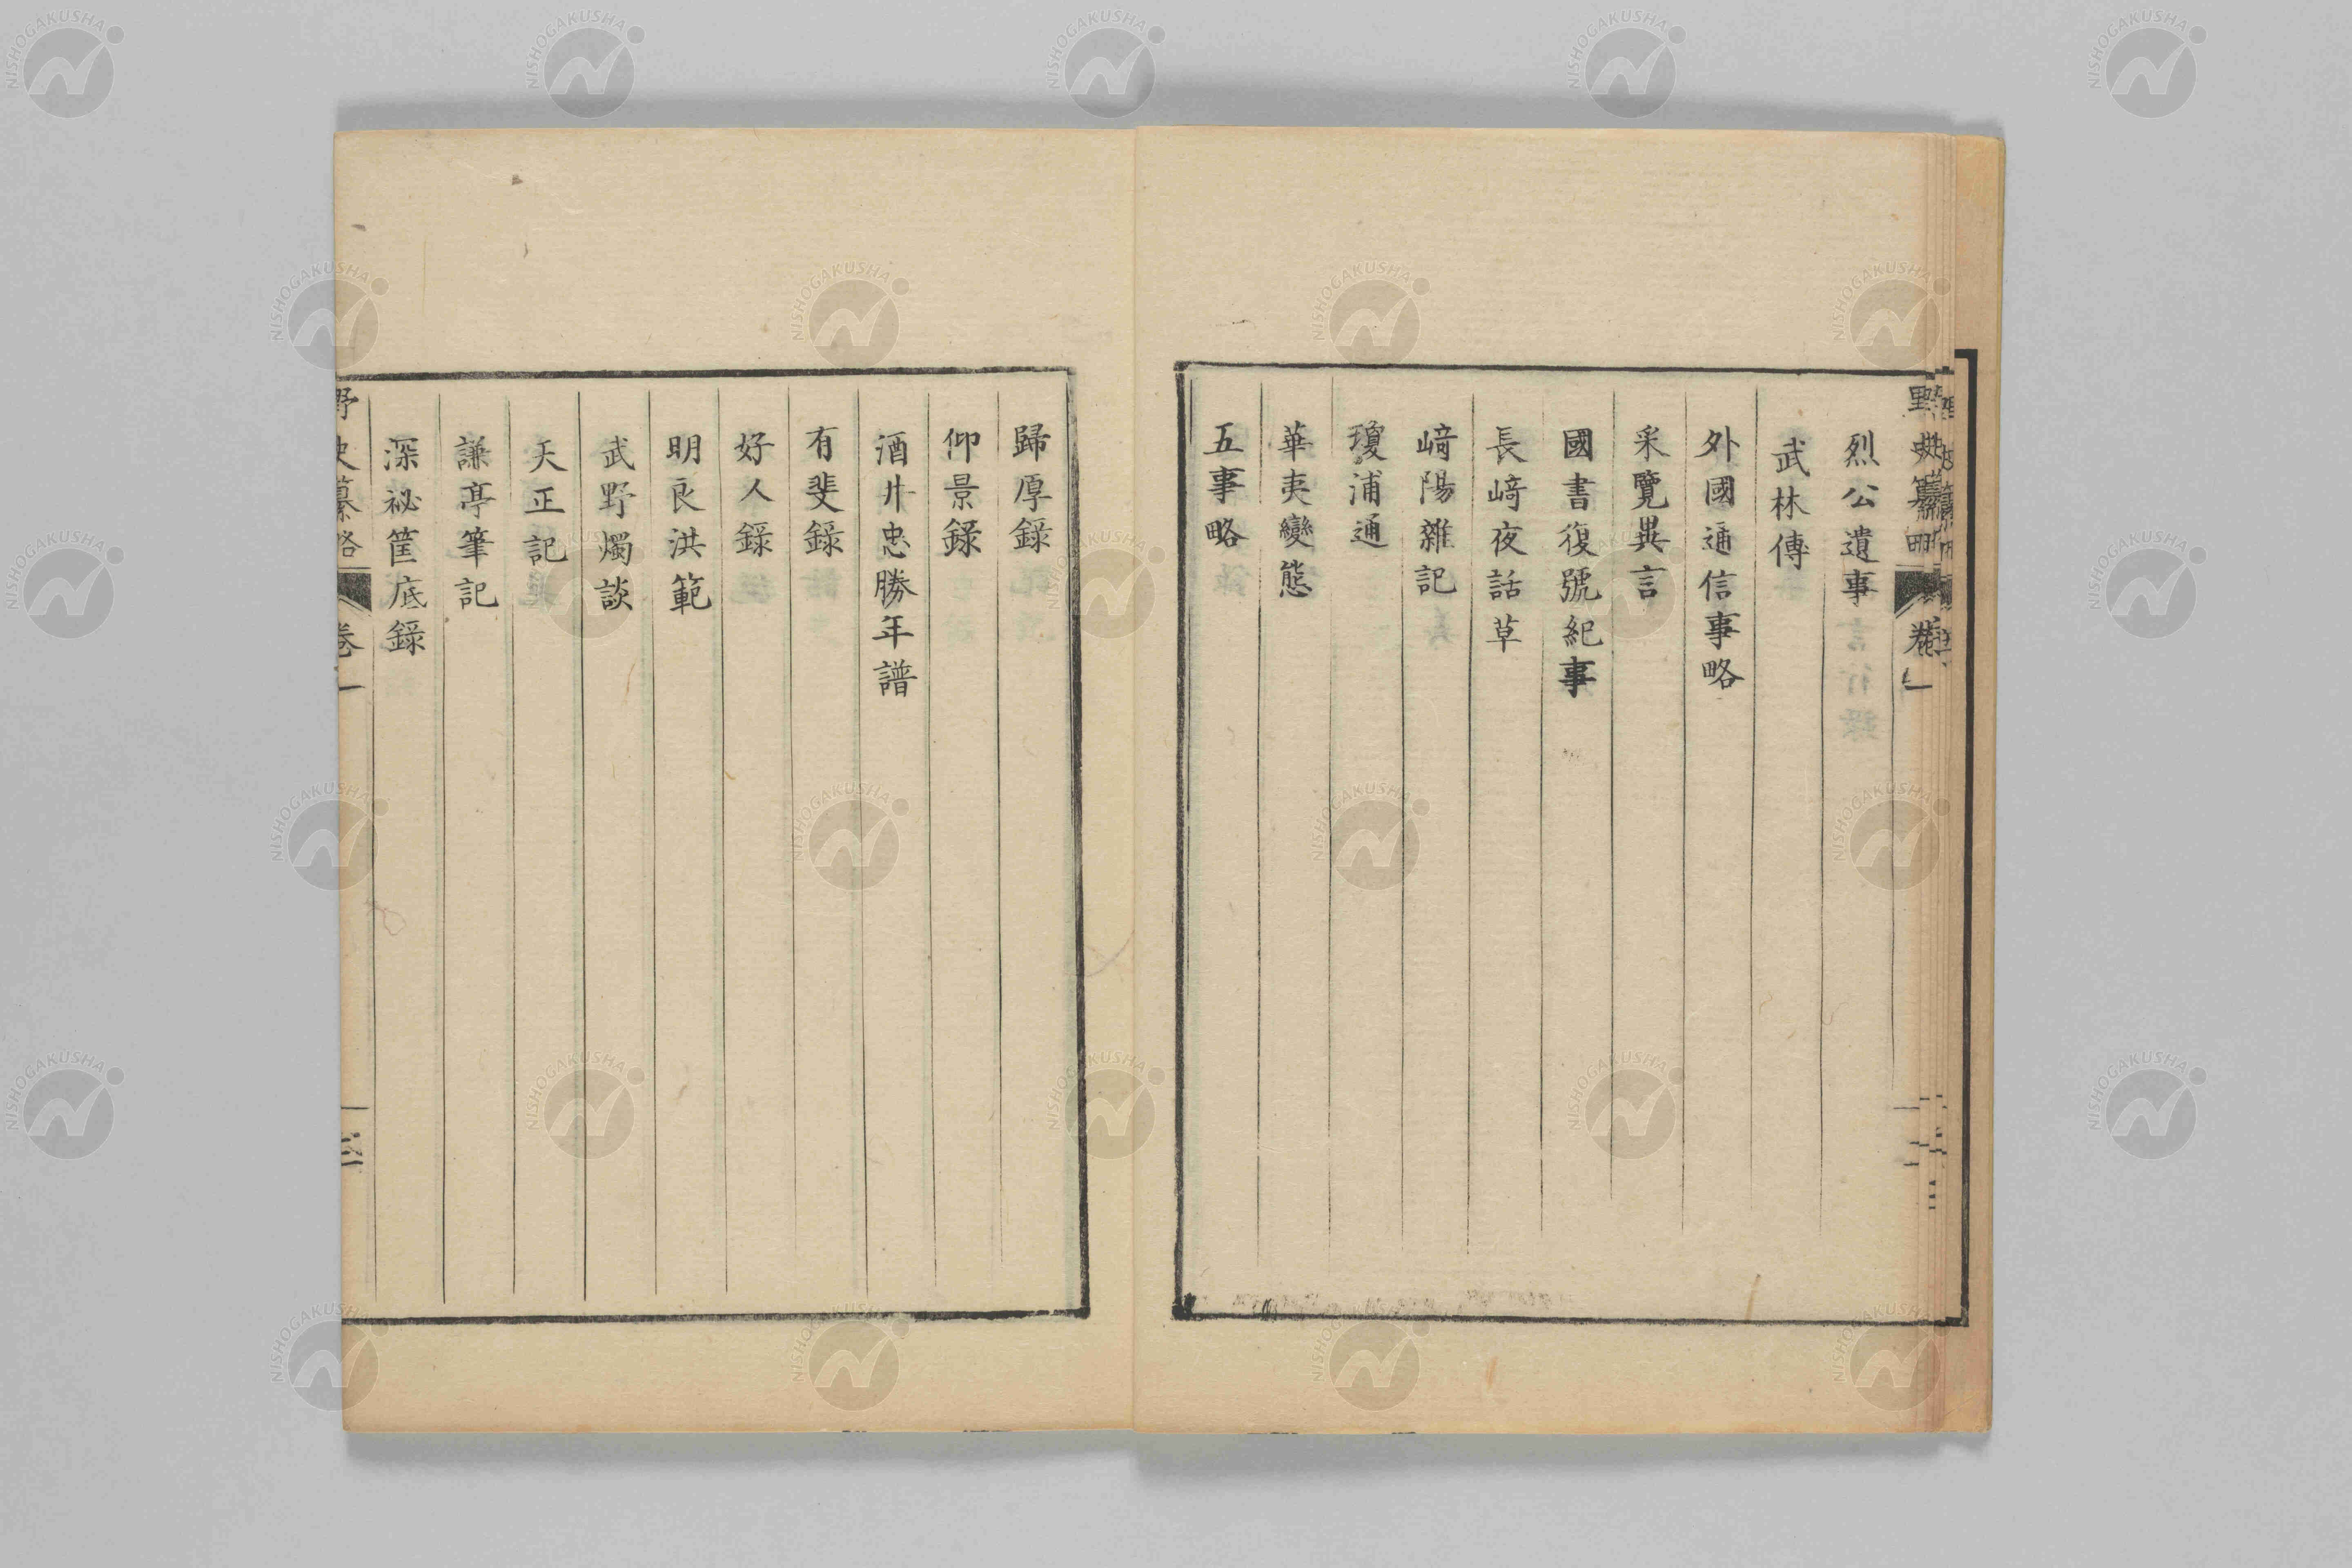 烈公遺事
武林傳
外國通信事略
采覽異言
國書復號紀事
長﨑夜話草
﨑陽雜記
瓊浦通
華夷變態
五事略
歸厚錄
仰景錄
酒井忠勝年譜
有斐錄
好人錄
明良洪範
武野燭談
天正記
謙亭筆記
深祕筐底錄
野史纂略
卷一
NISHOGAKUSHA